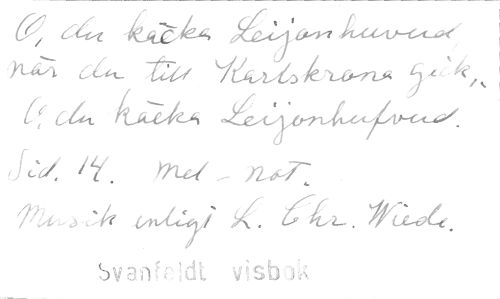 O, du käcka Leijonhuvud,
när du till Karlskrona gick,.
O, du käcka Leijonhufvud.
Sid. 14. Mel - not.
Musik enligt L. Chr. Wiede.
Svanfeldt visbok